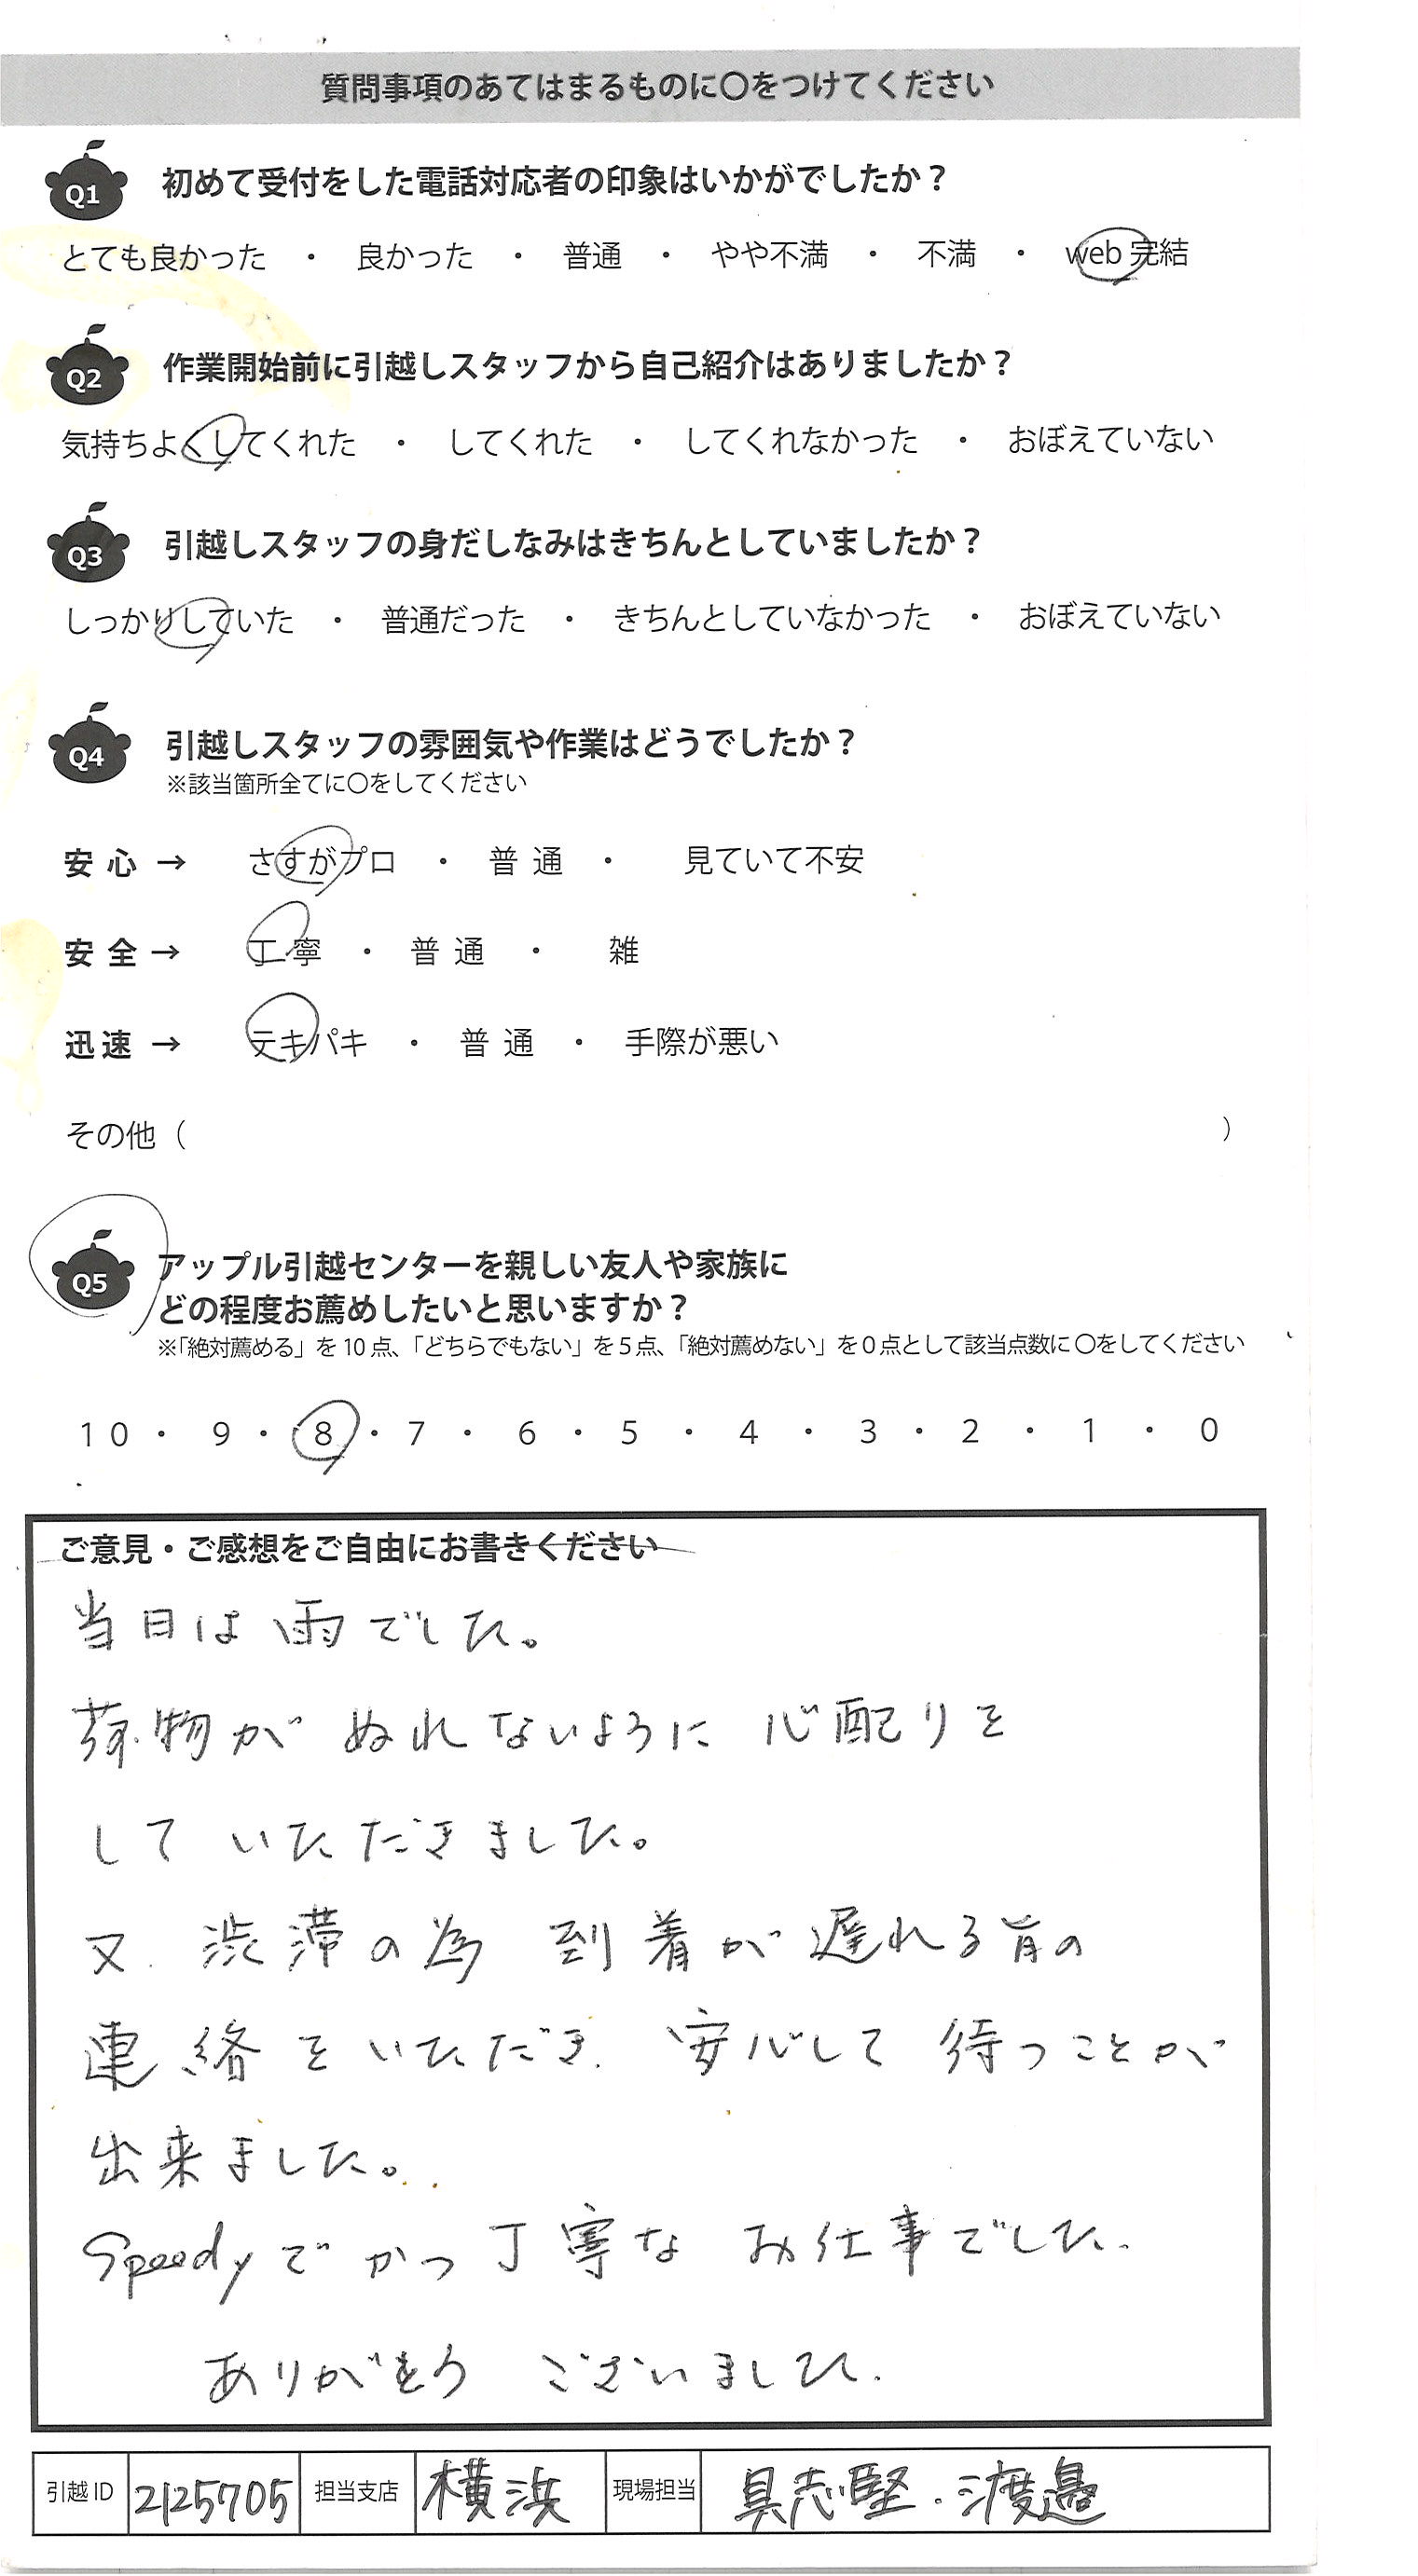 質問事項のあてはまるものに〇をつけてください
Q1 初めて受付をした電話対応者の印象はいかがでしたか？
とても良かった ・ 良かった ・ 普通 ・ やや不満 ・ 不満 ・ web 完結
Q2 作業開始前に引越しスタッフから自己紹介はありましたか？
気持ちよくしてくれた ・ してくれた ・ してくれなかった ・ おぼえていない
Q3 引越しスタッフの身だしなみはきちんとしていましたか？
しっかりしていた ・ 普通だった ・ きちんとしていなかった ・ おぼえていない
Q4 引越しスタッフの雰囲気や作業はどうでしたか？
※該当箇所全てに〇をしてください
安心 → さすがプロ ・ 普通 ・ 見ていて不安
安全 → 丁寧 ・ 普通 ・ 雑
迅速 → テキパキ ・ 普通 ・ 手際が悪い
その他（ ）
Q5 アップル引越センターを親しい友人や家族に
どの程度お薦めしたいと思いますか？
※「絶対薦める」を 10 点、「どちらでもない」を５点、「絶対薦めない」を０点として該当点数に〇をしてください
10 ・ 9 ・ 8 ・ 7 ・ 6 ・ 5 ・ 4 ・ 3 ・ 2 ・ 1 ・ 0
ご意見・ご感想をご自由にお書きください
当日は雨でした。
荷物がぬれないように心配りを
していただきました。
又、渋滞の為到着が遅れる旨の
連絡をいただき、安心して待つことが
出来ました。
Speedyでかつ丁寧なお仕事でした。
ありがとうございました。
引越 ID 2125705 担当支店 横浜 現場担当 具志堅・渡邉